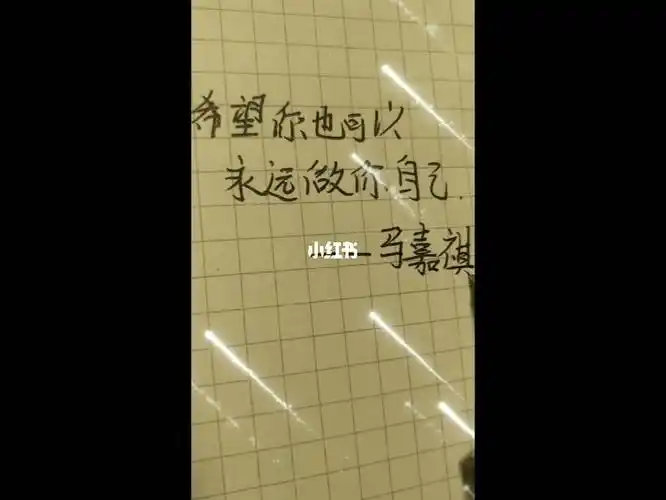 希望你也可以
永远做你自己.
小红书
——马嘉祺